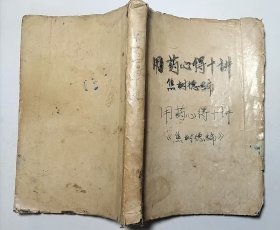 用药心得十讲
焦树德编
用药心得十讲
《焦树德编》